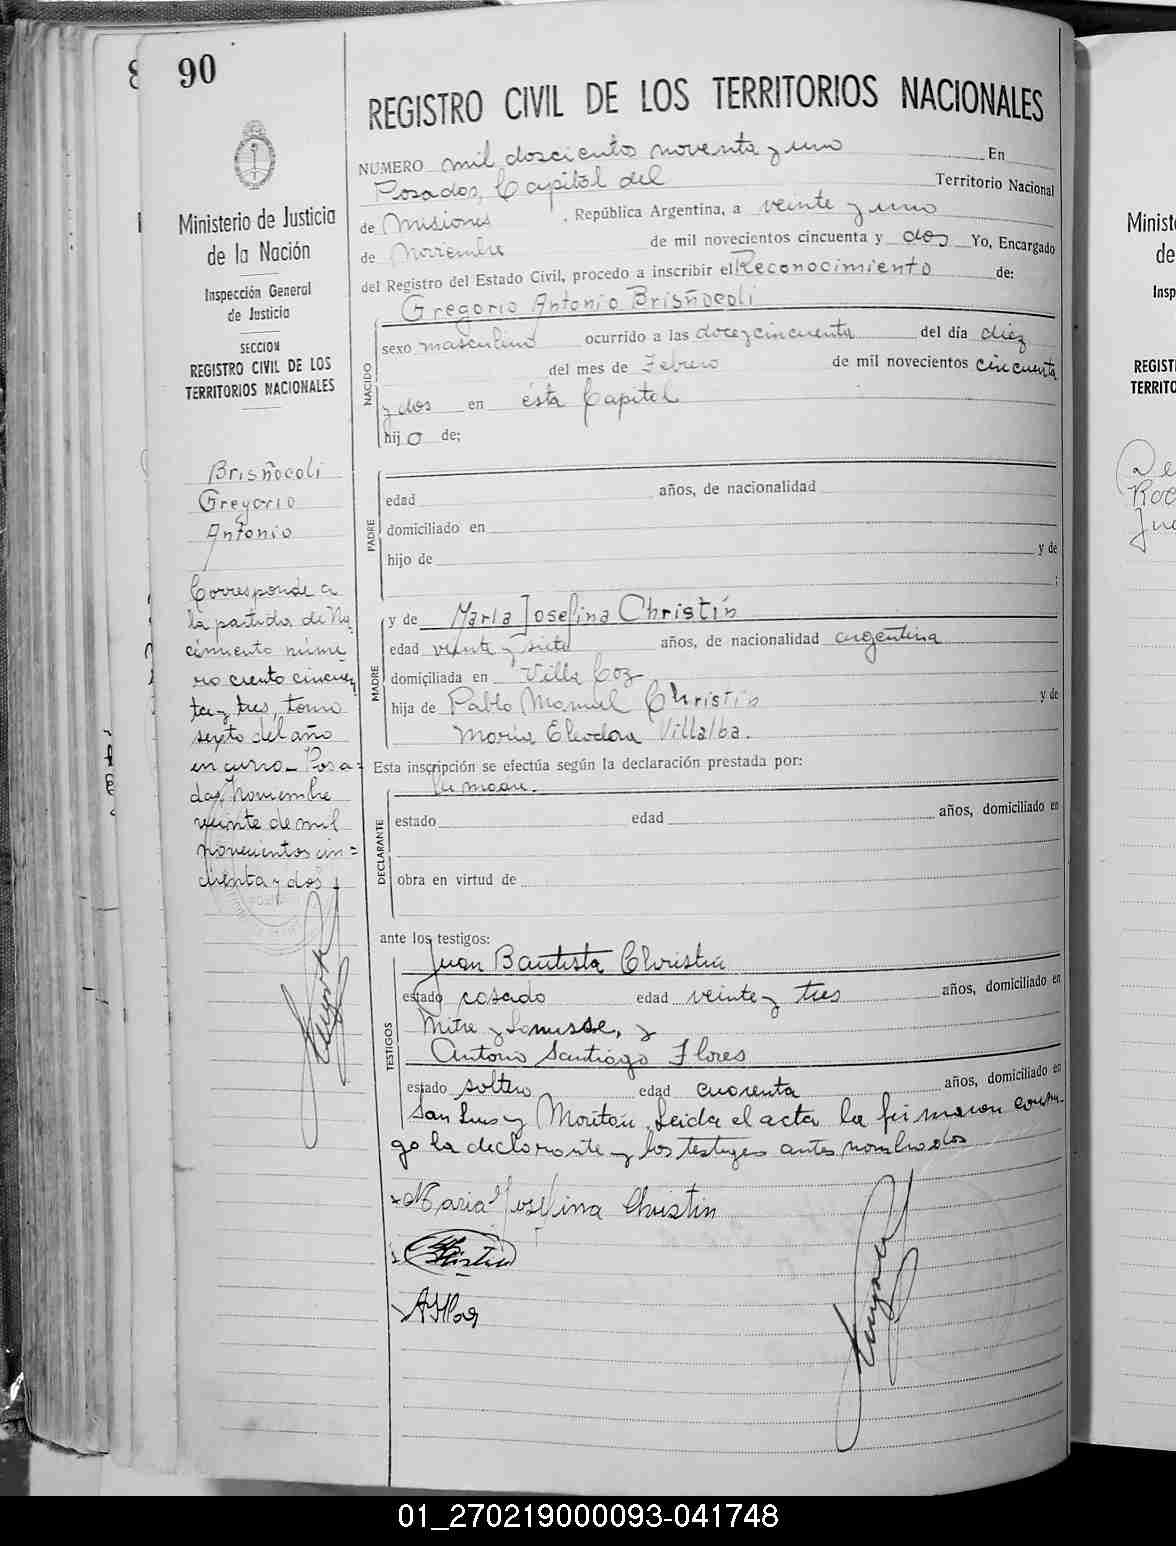 90
REGISTRO CIVIL DE LOS TERRITORIOS NACIONALES
Ministerio de Justicia
de la Nación
Inspección General
de Justicia
SECCION
REGISTRO CIVIL DE LOS
TERRITORIOS NACIONALES
Brisñocoli
Gregorio
Antonio
Corresponde a
la partida de Na
cimiento núme
ro ciento cincuen
ta y tres, tomo
sexto del año
en curso - Posa=
das, Noviembre
veinte de mil
novecientos cin=
cuenta y dos
NUMERO mil doscientos noventa y uno En
Posadas, Capital del Territorio Nacional
de Misiones , República Argentina, a veinte y uno
de Noviembre de mil novecientos cincuenta y dos Yo, Encargado
del Registro del Estado Civil, procedo a inscribir el Reconocimiento de:
Gregorio Antonio Brisñocoli
NACIDO
sexo masculino ocurrido a las doce y cincuenta del día diez
del mes de Febrero de mil novecientos cincuenta
y dos en ésta Capital
hijo de;
PADRE
edad años, de nacionalidad
domiciliado en
hijo de y de
;
MADRE
y de María Josefina Christín
edad veinte y siete años, de nacionalidad argentina
domiciliada en Villa Coz
hija de Pablo Manuel Christín y de
María Eleodora Villalba.
Esta inscripción se efectúa según la declaración prestada por:
la madre.
DECLARANTE
estado edad años, domiciliado en
obra en virtud de
ante los testigos:
TESTIGOS
Juan Bautista Christin
estado casado edad veinte y tres años, domiciliado en
Mitre y Lanusse, y
Antonio Santiago Flores
estado soltero edad cuarenta años, domiciliado en
San Luis y Moritán. Leida el acta la firmaron conmi-
go la declarante y los testigos antes nombrados
Maria Josefina Christin
Ministe
de
Insp
REGISTR
TERRITO
01_270219000093-041748